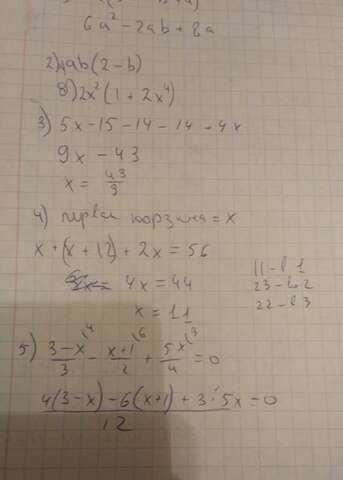 6a² - 2ab + 8a
2) 4ab(2 - b)
8) 2x²(1 + 2x⁴)
3) 5x - 15 - 14 - 14 + 4x
9x - 43
x = 43/9
4) первая корзина = x
x + (x + 12) + 2x = 56
4x = 44
x = 11
11 - в 1
23 - во 2
22 - в 3
5) (3 - x)/3 \4 - (x + 1)/2 \6 + 5x/4 \3 = 0
(4(3 - x) - 6(x + 1) + 3 · 5x)/12 = 0